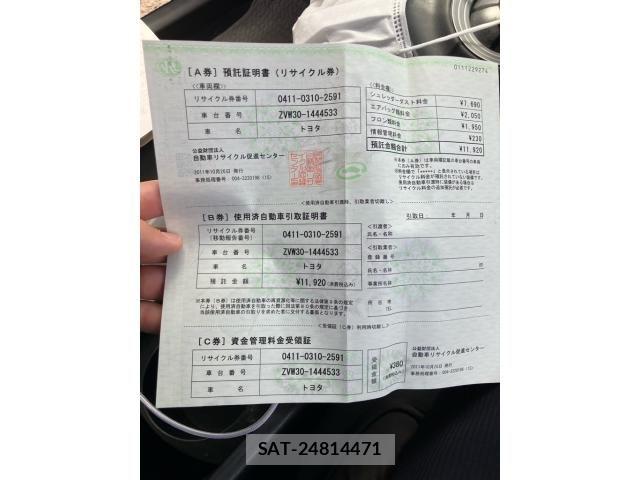 0111229274
[A券] 預託証明書 (リサイクル券)
<<車両欄>>
リサイクル券番号 0411-0310-2591
車台番号 ZVW30-1444533
車名 トヨタ
<<料金欄>>
シュレッダーダスト料金 ¥7,690
エアバッグ類料金 ¥2,050
フロン類料金 ¥1,950
情報管理料金 ¥230
預託金額合計 ¥11,920
公益財団法人
自動車リサイクル促進センター
2011年10月26日 発行
<使用済自動車引渡時、引取業者切離し>
[B券] 使用済自動車引取証明書
引取日: 年 月 日
リサイクル券番号
(移動報告番号) 0411-0310-2591
車台番号 ZVW30-1444533
車名 トヨタ
預託金額 ¥11,920 (消費税込み)
<引渡者>
氏名・名称
<引取業者>
登録番号
氏名・名称 印
事業所名
所在地
TEL
<受領証(C券)利用時切離し>
[C券] 資金管理料金受領証
リサイクル券番号 0411-0310-2591
車台番号 ZVW30-1444533
車名 トヨタ
受領金額 ¥380
(消費税込み)
公益財団法人
自動車リサイクル促進センター
2011年10月26日 発行
SAT-24814471